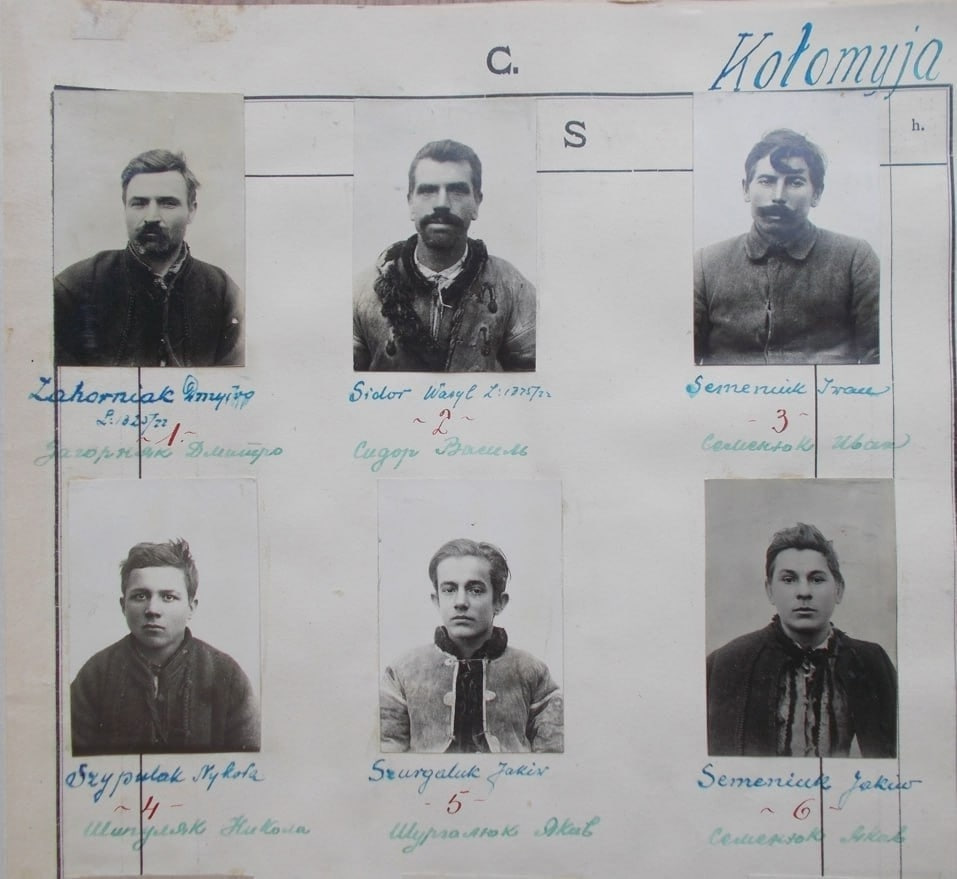 C.
Kołomyja
S
h.
Zahorniak Dmytro
Sidor Wasyl L: 1375/22
Semeniuk Iwan
L: 1325/22
~1~
~2~
~3~
Загорняк Дмитро
Сидор Василь
Семенюк Иван
Szypulak Nykoła
Szurgaluk Jakiw
Semeniuk Jakiw
~4~
5
~6~
Шипуляк Никола
Шургалюк Якив
Семенюк Якив